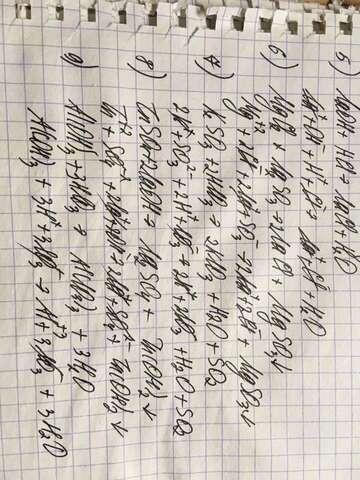 5) NaOH + HCl = NaCl + H2O
Na⁺ + OH⁻ + H⁺ + Cl⁻ = Na⁺ + Cl⁻ + H2O
6) MgCl2 + Na2SO3 → 2NaCl + MgSO3↓
Mg⁺² + 2Cl⁻ + 2Na⁺ + SO3⁻ → 2Na⁺ + 2Cl⁻ + MgSO3↓
7) K2SO3 + 2HNO3 = 2KNO3 + H2O + SO2
2K⁺ + SO3²⁻ + 2H⁺ + 2NO3⁻ = 2K⁺ + 2NO3⁻ + H2O + SO2
8) ZnSO4 + 2NaOH = Na2SO4 + Zn(OH)2↓
+ 2Na⁺ + 2OH⁻ = 2Na⁺ + SO4²⁻ + Zn(OH)2↓
9) Al(OH)3 + 3HNO3 = Al(NO3)3 + 3H2O
Al(OH)3 + 3H⁺ + 3NO3⁻ = Al⁺³ + 3NO3⁻ + 3H2O